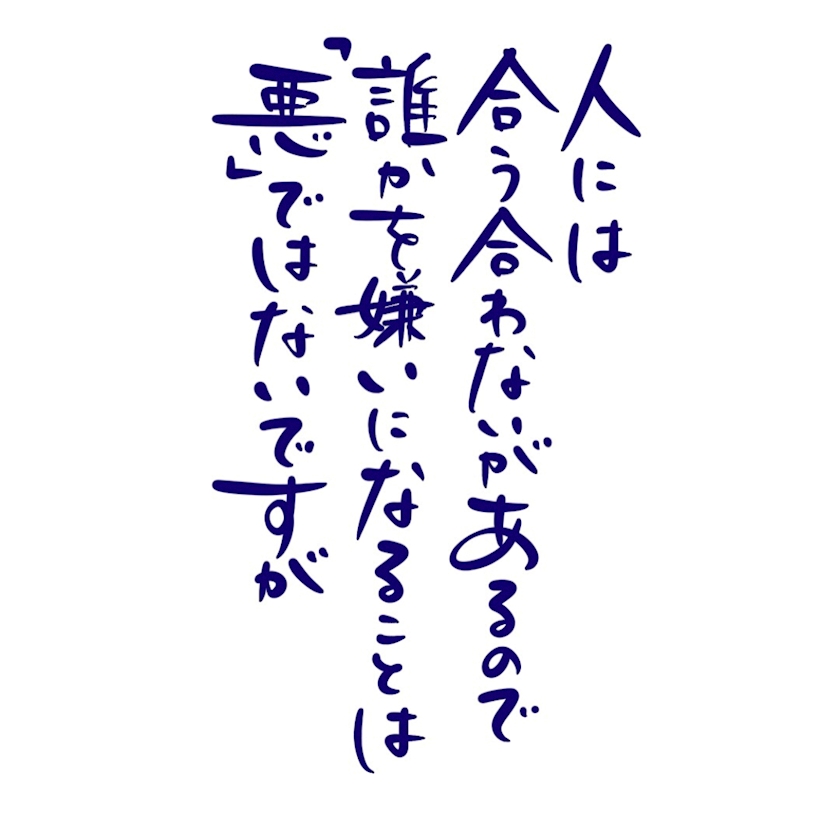 人には
合う合わないがあるので
誰かを嫌いになることは
「悪」ではないですが